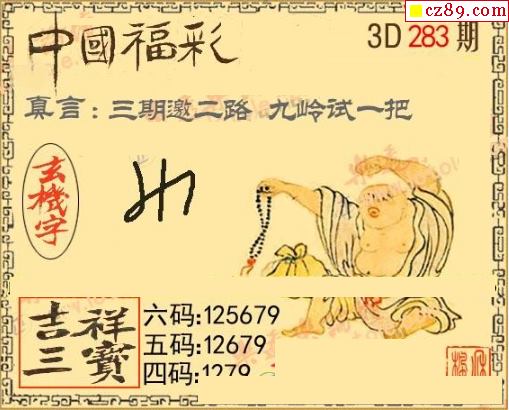 cz89.com
中國福彩
3D 283 期
真言：三期邀二路 九岭试一把
玄機字
吉祥三寶
六码:125679
五码:12679
四码:1279